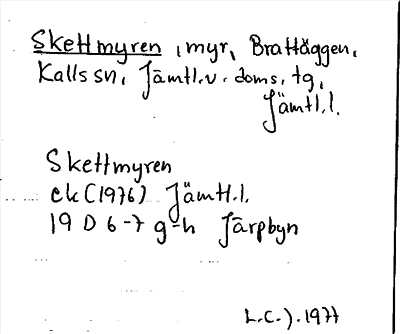 Skettmyren, myr, Brattäggen,
Kalls sn, Jämtl. v. doms. tg,
Jämtl. l.
Skettmyren
ek (1976) Jämtl. l.
19 D 6-7 g-h Järpbyn
L.C.J. 1977